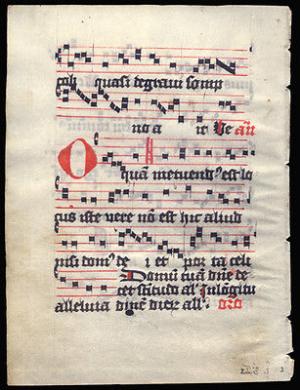 cob quasi de gravi somp
no a it
O quā metuendꝰ est lo
cus iste vere nō est hic aliud
nisi domꝰ de i et por ta celi
Domū tuā dñe de
cet scitudo al' Inlōgitu
alleluia dier all'.